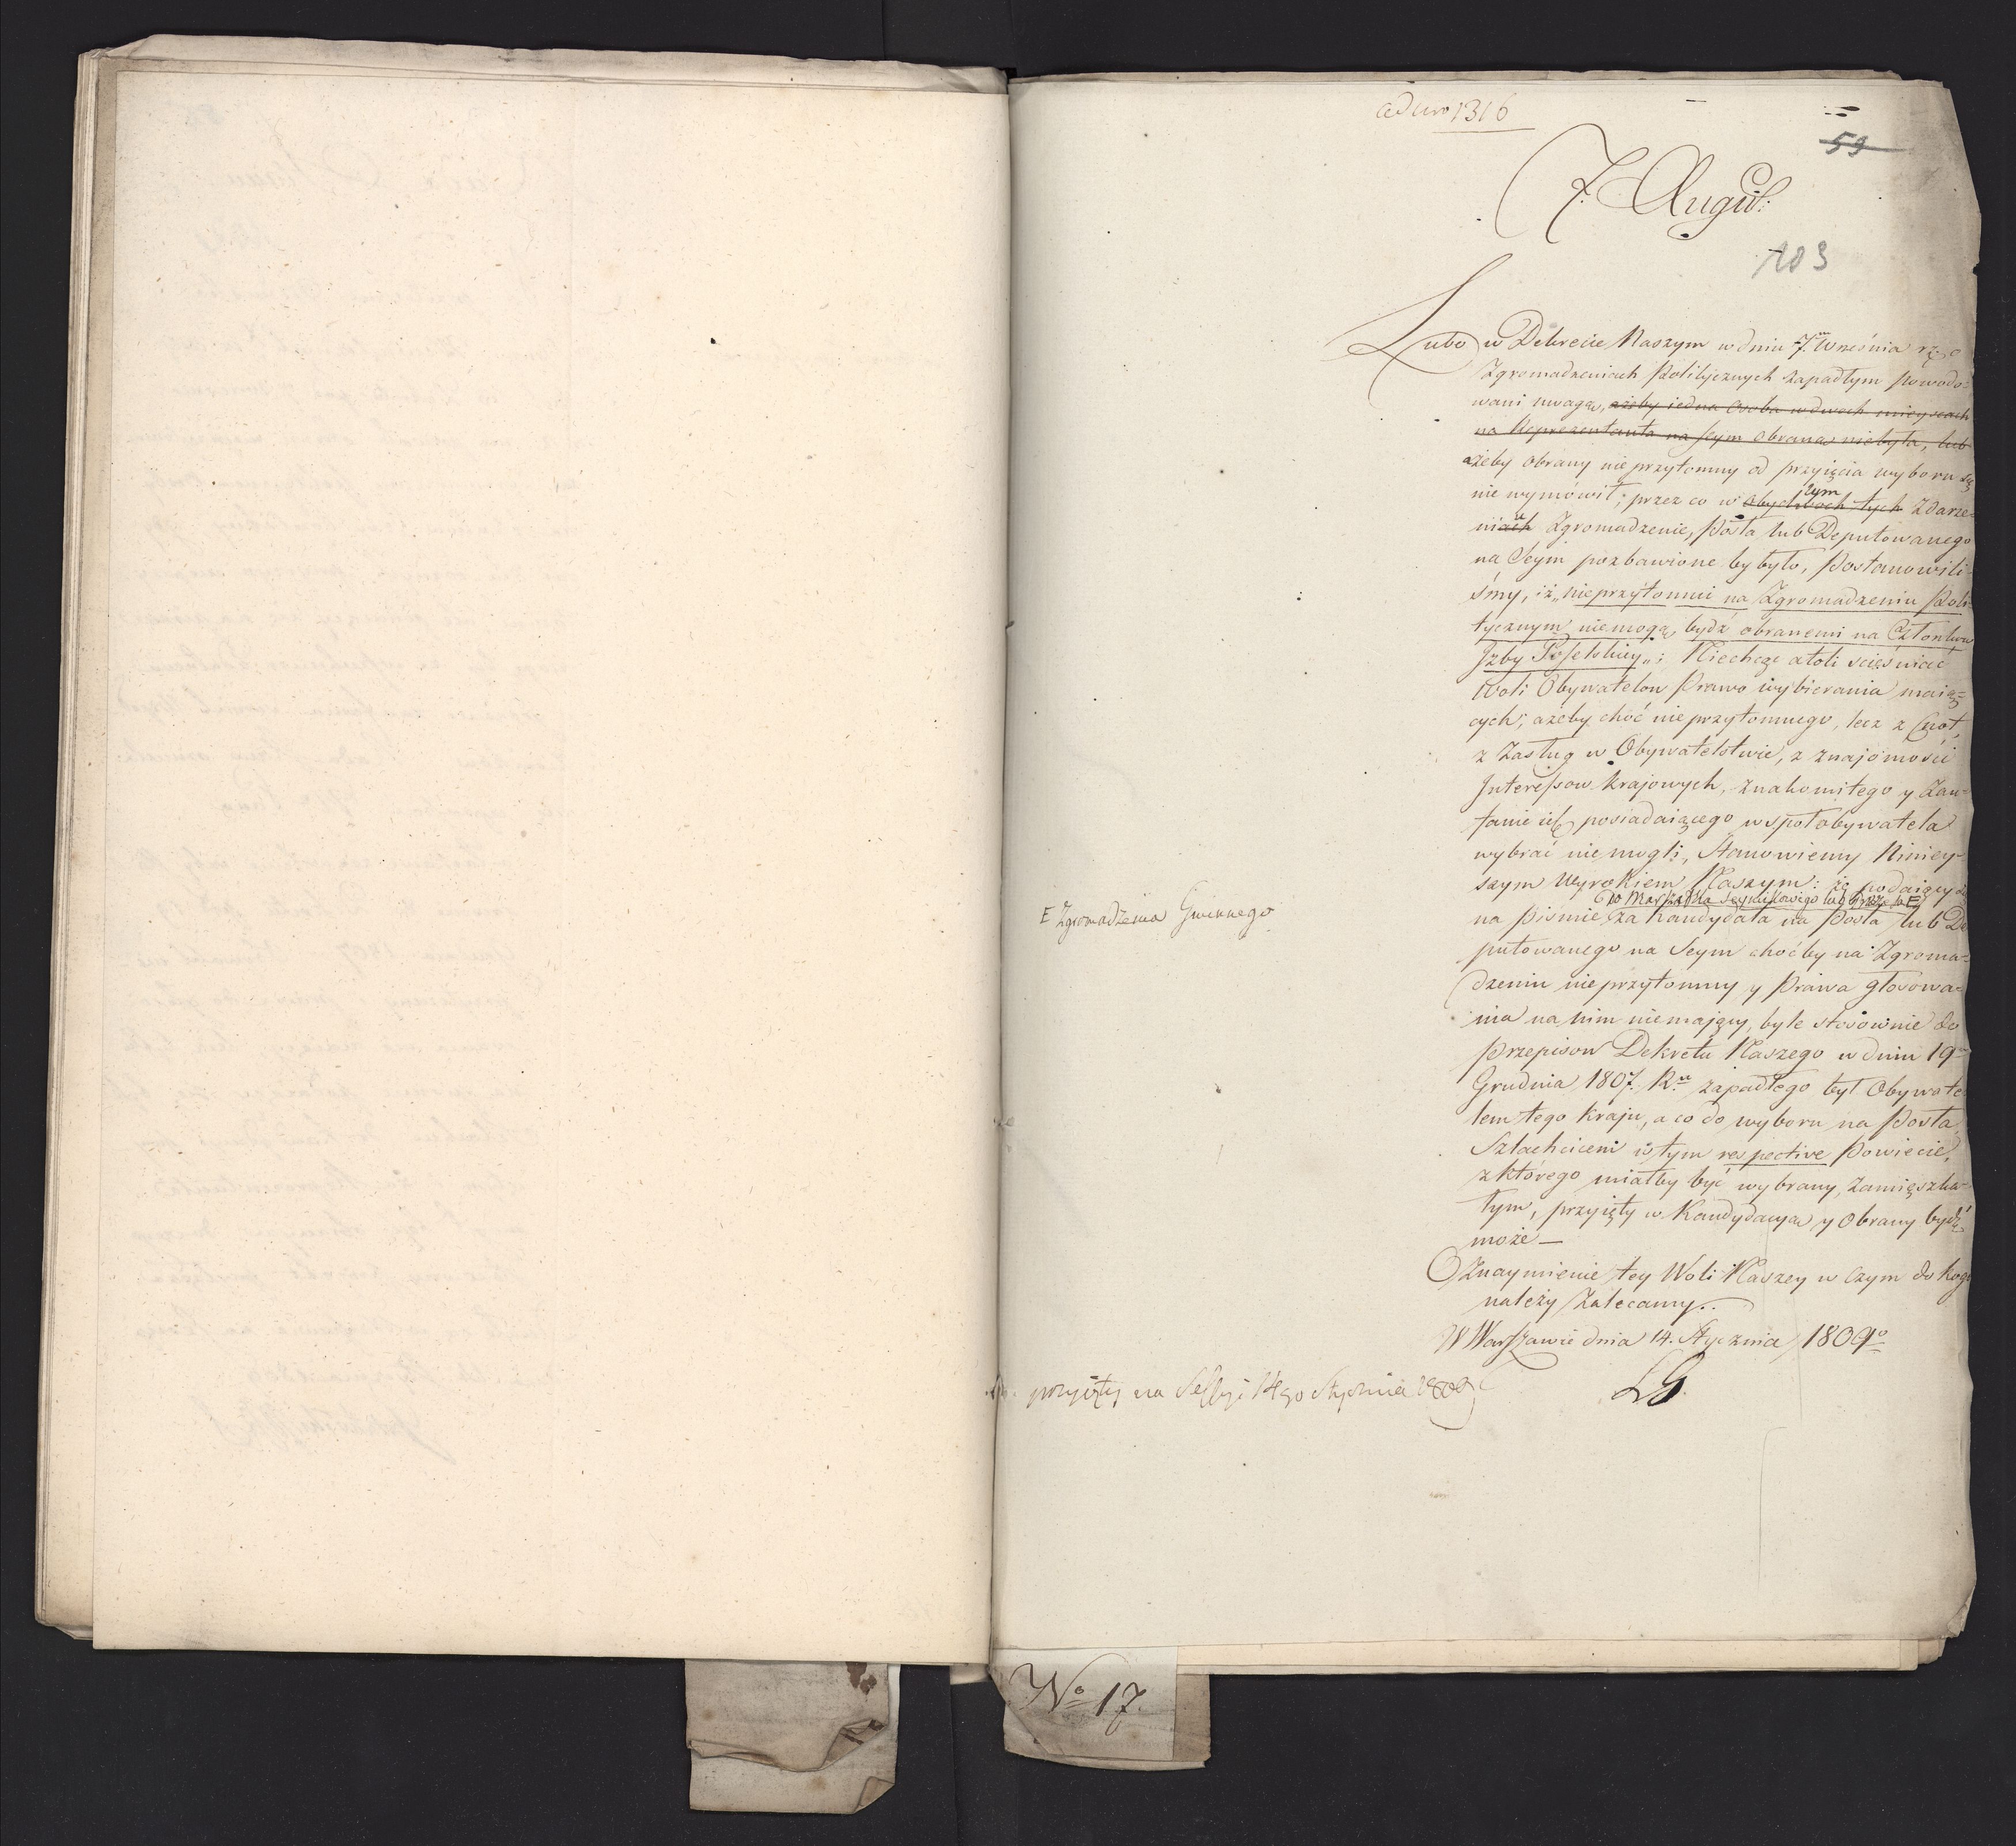 ad Nro 1316
59
F. Augus:
103
Lubo w Dekrecie Naszym w dniu 7. Września r. z. o
Zgromadzeniach Politycznych zapadłym powodo-
wani uwagą, ażeby iedna Osoba w dwoch mieyscach
na Reprezentanta na Seym obraną niebyła, lub
ażeby obrany nieprzytomny od przyięcia wyboru się
nie wymówił; przez co w obydwoch tych tym Zdarze-
niach u Zgromadzenie, Posła lub Deputowanego
na Seym pozbawione byłyby, Postanowili-
śmy, iż „nieprzytomni na Zgromadzeniu Poli-
tycznym niemogą bydź obranemi na Członków
Jzby Poselskiey„; Niechcąc atoli scieśniać
Woli Obywatelow Prawo wybierania maią-
cych; ażeby choć nieprzytomnego, lecz z Cnot,
z Zasług w Obywatelstwie, z znajomości
Interessow krajowych, znakomitego y Zau-
fanie ich posiadaiącego wspołobywatela
wybrać niemogli, Stanowiemy Niniey-
szym Wyrokiem Naszym: że podaiący się
do Marszałka Seymikowego lub Preze sa E
na piśmie za Kandydata na Posła lub De
putowanego na Seym choćby na Zgroma-
dzeniu nieprzytomny y Prawa głosowa-
nia na nim niemający, byle stosownie do
Przepisow Dekretu Naszego w dniu 19
Grudnia 1807. Ru zapadłego był Obywate-
lem tego kraju, a co do wyboru na Posła,
Szlachcicem w tym respective Powiecie,
z którego miałby być wybrany, Zamięszka-
łym, przyięty w Kandydacyą y Obrany bydź
może —
Oznaymienie tey Woli Naszey w czym do kogo
należy Zalecamy.
W Warszawie dnia 14. Stycznia 1809o
E Zgromadzenia Gminnego
przyięty na Sessyi 14go Stycznia 1809
No 17.